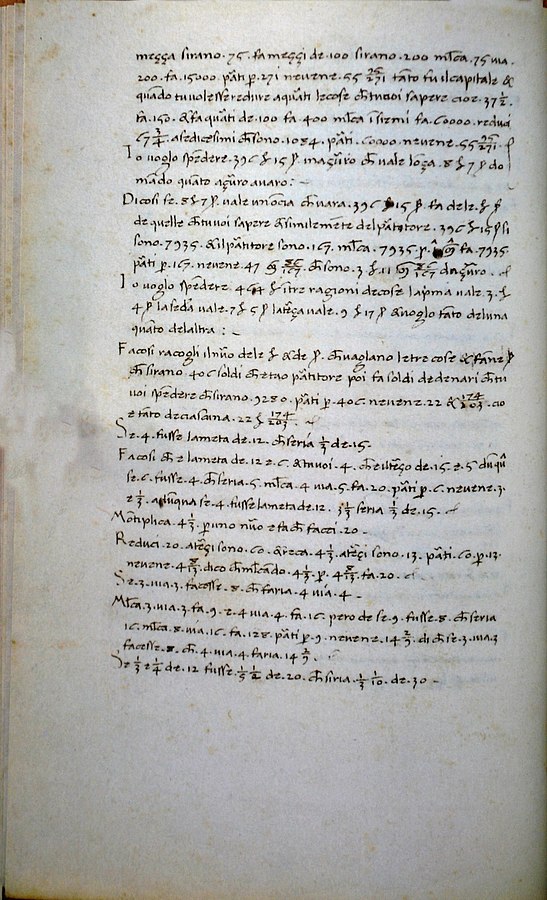 mezza sirano · 75 · fa mezzi de · 100 sirano · 200 mlca · 75 via ·
200 · fa · 15000 · parti per · 271 nevene · 55 95/271 tato fu il capitale &
quando tu volesse redure aquarti le cose che tu voi sapere cioe · 37 1/2 ·
fa · 150 · & fa quarti de · 100 · fa · 400 mlca i siemi fa · 60000 · reduci
67 3/4 · a sedicesimi che sono · 1084 · parti · 60000 · nevene · 55 95/271 ·
Io voglo spendere · 396 ₰ 15 ꝑ · in azurro che vale lonza · 8 ₰ 7 ꝑ do
mando quanto azurro avaro : ~
Dicosi se · 8 ₰ 7 ꝑ · vale un oncia che vara · 396 ₰ 15 ꝑ · fa de le · ₰ ꝑ
de quelle che tu voi sapere & similemente del partitore · 396 ₰ 15 ꝑ si
sono · 7935 · & il partitore sono · 167 · mlca · 7935 per · 1 fa · 7935
parti per · 167 · nevene · 47 che sono · 3 · ₰ · 11 dazurro ·
Io voglo spedere · 464 ₰ i stre ragioni de cose la prima vale · 3 · ₰
4 ꝑ la seda vale · 7 ₰ 5 ꝑ la terza vale · 9 ₰ 17 ꝑ & voglo tato de luna
quato de laltra : ~
Facosi racogli il nuo dele ₰ & de ꝑ · che vaglano le tre cose & fane ꝑ
che sirano · 406 soldi che e tuo partitore poi fa soldi de denari che tu
voi spendere che sirano · 9280 · parti per · 406 · nevene · 22 & 174/203 · cio
e tato de ciascuna · 22 ₰ 174/203 ·
Se · 4 · fusse la meta de · 12 · che seria 1/3 de · 15 ·
Facosi che e la meta de · 12 e · 6 · & tu voi · 4 · che e il terzo de · 15 · e · 5 · dunqua
se · 6 · fusse · 4 · che seria · 5 · mlca · 4 via · 5 · fa · 20 · parti per · 6 · nevene · 3 ·
e 1/3 · adunqua se · 4 · fusse la meta de · 12 · 3 1/3 seria 1/3 de · 15 ·
Montiplica · 4 1/3 · per uno nuo e fa che facci · 20 ~
Reduci · 20 · a terzi sono · 60 · & reca · 4 1/3 · a terzi sono · 13 · parti · 60 · per · 13 ·
nevene · 4 8/13 · dico che mlcado · 4 1/3 · per · 4 8/13 · fa · 20 ·
Se · 3 · via · 3 · facesse · 8 · che faria · 4 via · 4 ~
Mlca · 3 · via · 3 · fa · 9 · e · 4 via · 4 · fa · 16 · pero de se · 9 · fusse · 8 · che seria
16 · mlca · 8 · via · 16 · fa · 128 · parti per · 9 · nevene · 14 2/9 · di che se · 3 · via · 3
facesse · 8 · che · 4 · via · 4 · faria · 14 2/9 ·
Se 1/3 e 1/4 de · 12 fusse · 1/5 1/2 de · 20 · che siria · 1/3 1/10 · de · 30 ~